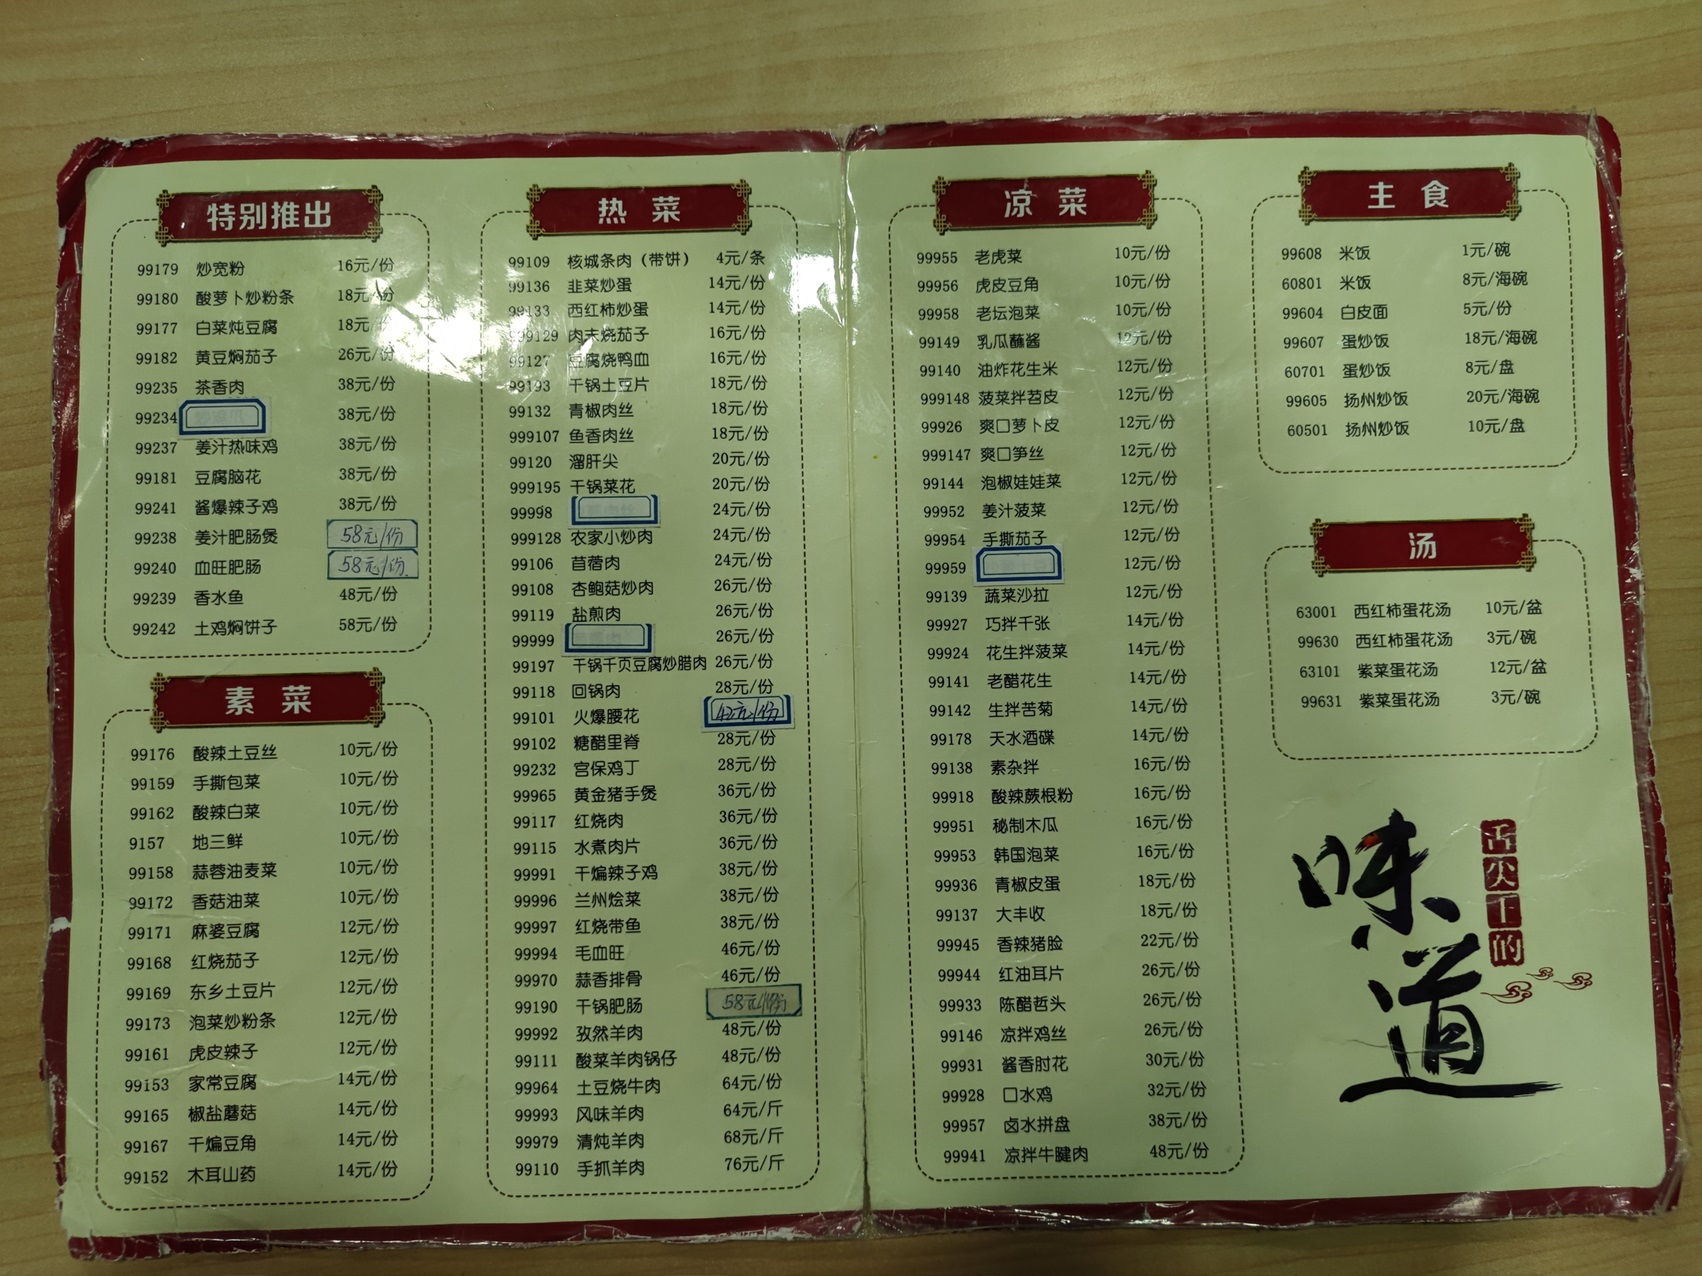 特别推出
99179 炒宽粉 16元/份
99180 酸萝卜炒粉条 18元/份
99177 白菜炖豆腐 18元
99182 黄豆焖茄子 26元/份
99235 茶香肉 38元/份
99234 38元/份
99237 姜汁热味鸡 38元/份
99181 豆腐脑花 38元/份
99241 酱爆辣子鸡 38元/份
99238 姜汁肥肠煲 58元/份
99240 血旺肥肠 58元/份
99239 香水鱼 48元/份
99242 土鸡焖饼子 58元/份
素菜
99176 酸辣土豆丝 10元/份
99159 手撕包菜 10元/份
99162 酸辣白菜 10元/份
9157 地三鲜 10元/份
99158 蒜蓉油麦菜 10元/份
99172 香菇油菜 10元/份
99171 麻婆豆腐 12元/份
99168 红烧茄子 12元/份
99169 东乡土豆片 12元/份
99173 泡菜炒粉条 12元/份
99161 虎皮辣子 12元/份
99153 家常豆腐 14元/份
99165 椒盐蘑菇 14元/份
99167 干煸豆角 14元/份
99152 木耳山药 14元/份
热菜
99109 核城条肉（带饼） 4元/条
99136 韭菜炒蛋 14元/份
99133 西红柿炒蛋 14元/份
999129 肉末烧茄子 16元/份
99127 豆腐烧鸭血 16元/份
99193 干锅土豆片 18元/份
99132 青椒肉丝 18元/份
999107 鱼香肉丝 18元/份
99120 溜肝尖 20元/份
999195 干锅菜花 20元/份
99998 24元/份
999128 农家小炒肉 24元/份
99106 苜蓿肉 24元/份
99108 杏鲍菇炒肉 26元/份
99119 盐煎肉 26元/份
99999 26元/份
99197 干锅千页豆腐炒腊肉 26元/份
99118 回锅肉 28元/份
99101 火爆腰花 42元/份
99102 糖醋里脊 28元/份
99232 宫保鸡丁 28元/份
99965 黄金猪手煲 36元/份
99117 红烧肉 36元/份
99115 水煮肉片 36元/份
99991 干煸辣子鸡 38元/份
99996 兰州烩菜 38元/份
99997 红烧带鱼 38元/份
99994 毛血旺 46元/份
99970 蒜香排骨 46元/份
99190 干锅肥肠 58元/份
99992 孜然羊肉 48元/份
99111 酸菜羊肉锅仔 48元/份
99964 土豆烧牛肉 64元/份
99993 风味羊肉 64元/斤
99979 清炖羊肉 68元/斤
99110 手抓羊肉 76元/斤
凉菜
99955 老虎菜 10元/份
99956 虎皮豆角 10元/份
99958 老坛泡菜 10元/份
99149 乳瓜蘸酱 12元/份
99140 油炸花生米 12元/份
999148 菠菜拌苔皮 12元/份
99926 爽口萝卜皮 12元/份
999147 爽口笋丝 12元/份
99144 泡椒娃娃菜 12元/份
99952 姜汁菠菜 12元/份
99954 手撕茄子 12元/份
99959 12元/份
99139 蔬菜沙拉 12元/份
99927 巧拌千张 14元/份
99924 花生拌菠菜 14元/份
99141 老醋花生 14元/份
99142 生拌苦菊 14元/份
99178 天水酒碟 14元/份
99138 素杂拌 16元/份
99918 酸辣蕨根粉 16元/份
99951 秘制木瓜 16元/份
99953 韩国泡菜 16元/份
99936 青椒皮蛋 18元/份
99137 大丰收 18元/份
99945 香辣猪脸 22元/份
99944 红油耳片 26元/份
99933 陈醋哲头 26元/份
99146 凉拌鸡丝 26元/份
99931 酱香肘花 30元/份
99928 口水鸡 32元/份
99957 卤水拼盘 38元/份
99941 凉拌牛腱肉 48元/份
主食
99608 米饭 1元/碗
60801 米饭 8元/海碗
99604 白皮面 5元/份
99607 蛋炒饭 18元/海碗
60701 蛋炒饭 8元/盘
99605 扬州炒饭 20元/海碗
60501 扬州炒饭 10元/盘
汤
63001 西红柿蛋花汤 10元/盆
99630 西红柿蛋花汤 3元/碗
63101 紫菜蛋花汤 12元/盆
99631 紫菜蛋花汤 3元/碗
舌尖上的
味道